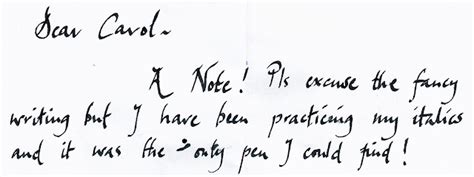 Dear Carol~
A Note! Pls excuse the fancy
writing but I have been practicing my italics
and it was the only pen I could find!